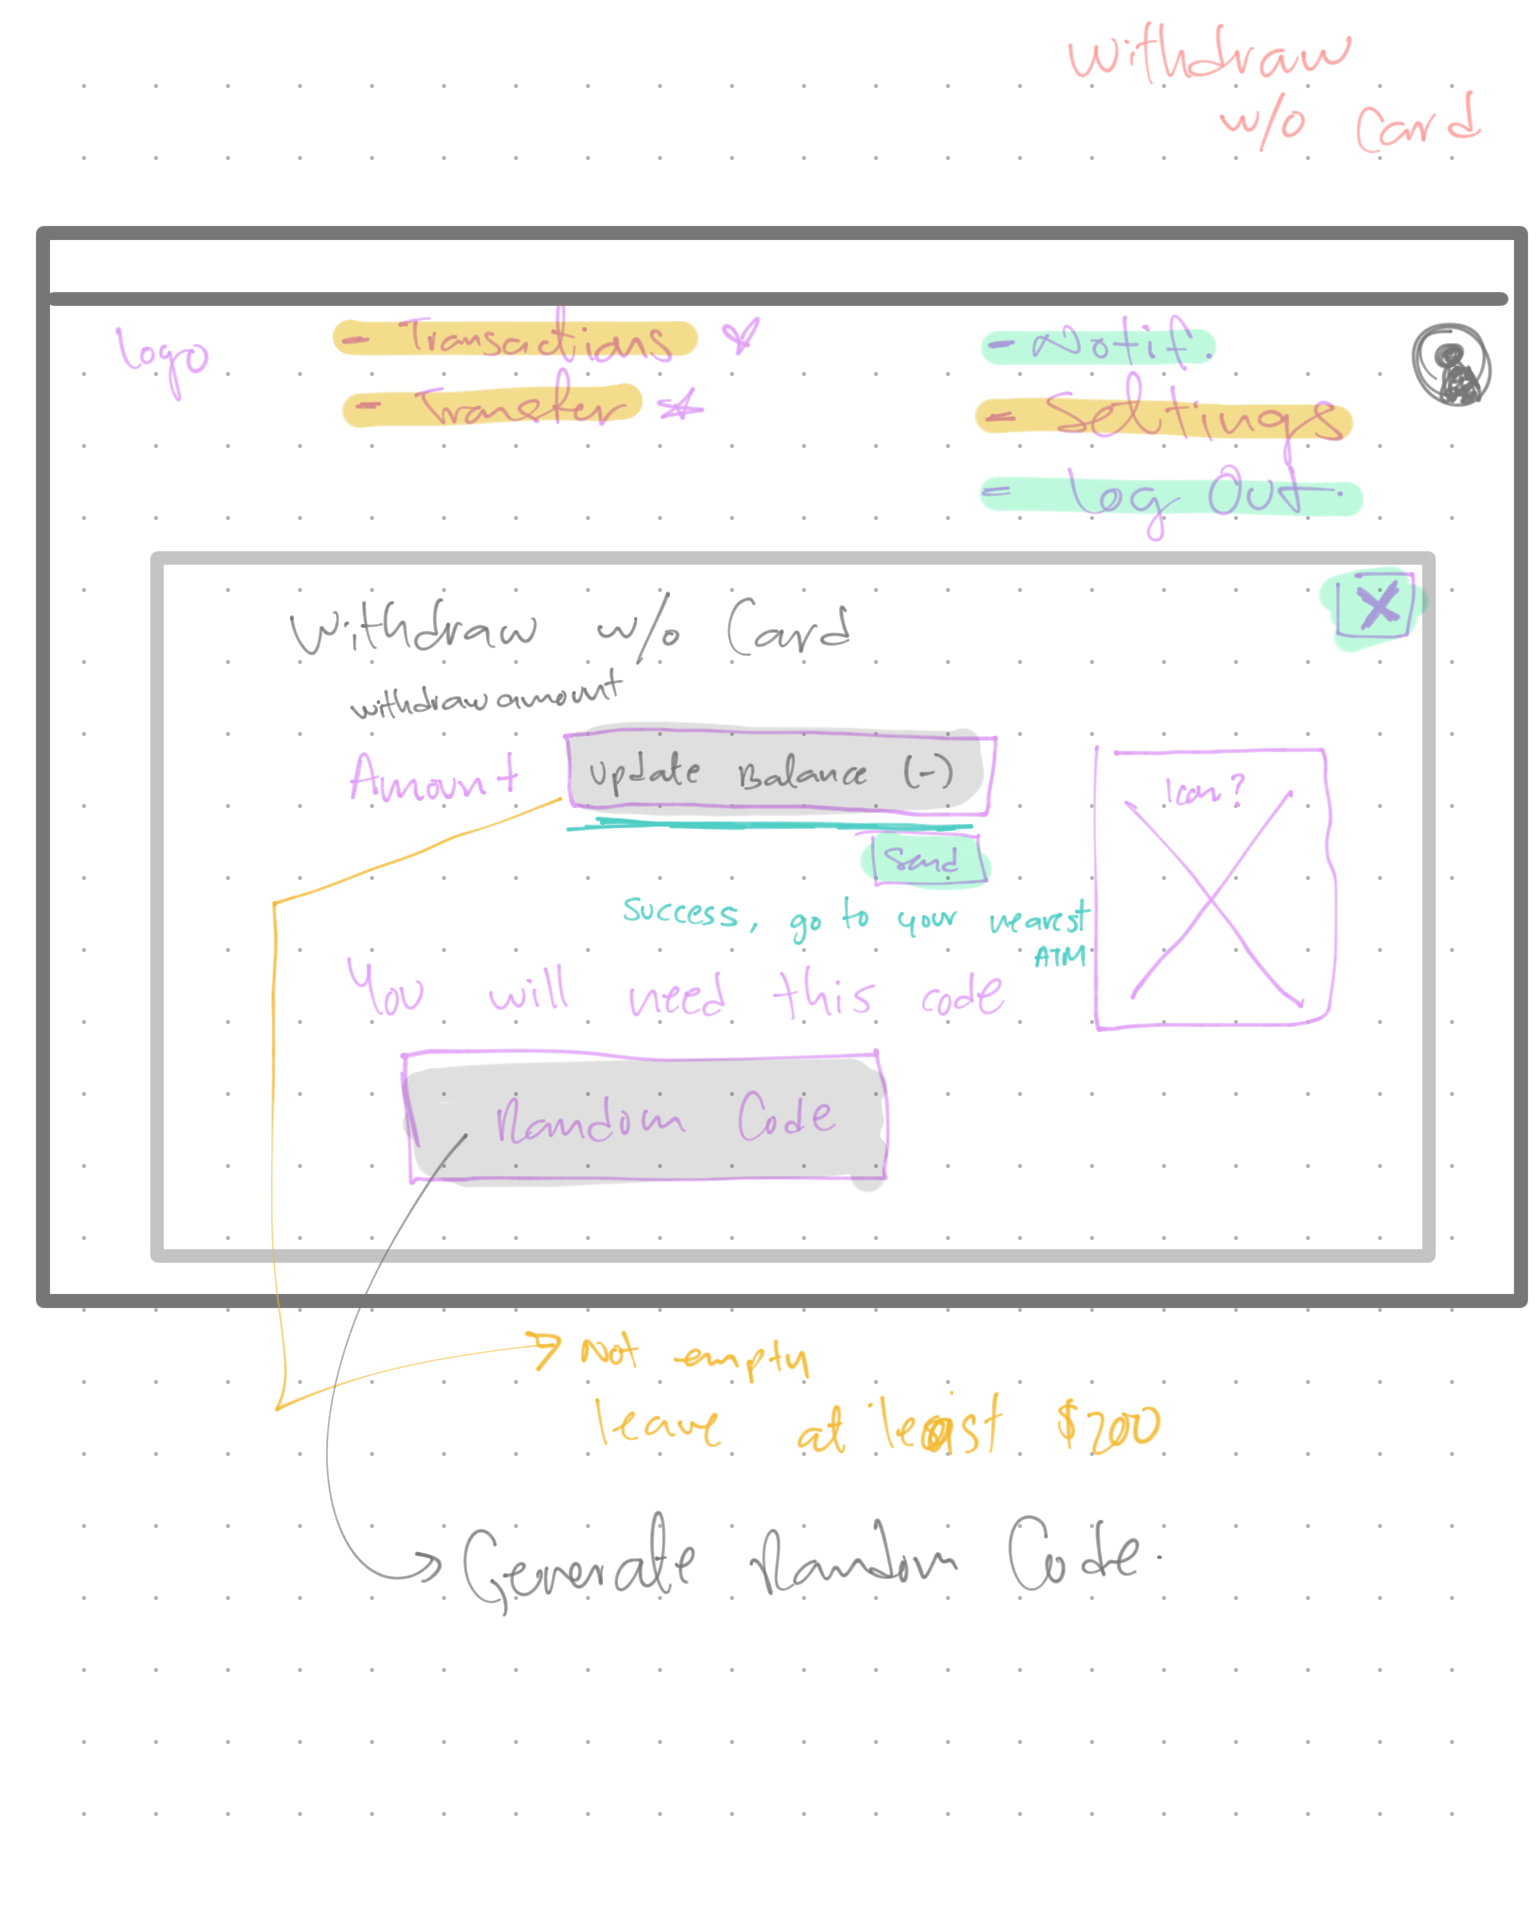 Withdraw
w/o Card
Logo
- Transactions
- Transfer
- Notif.
- Settings
- Log Out.
Withdraw w/o Card
X
withdraw amount
Amount
Update Balance (-)
Icon?
Send
Success, go to your nearest
ATM
You will need this code
Random Code
Not empty
leave at least $200
Generate Random Code.